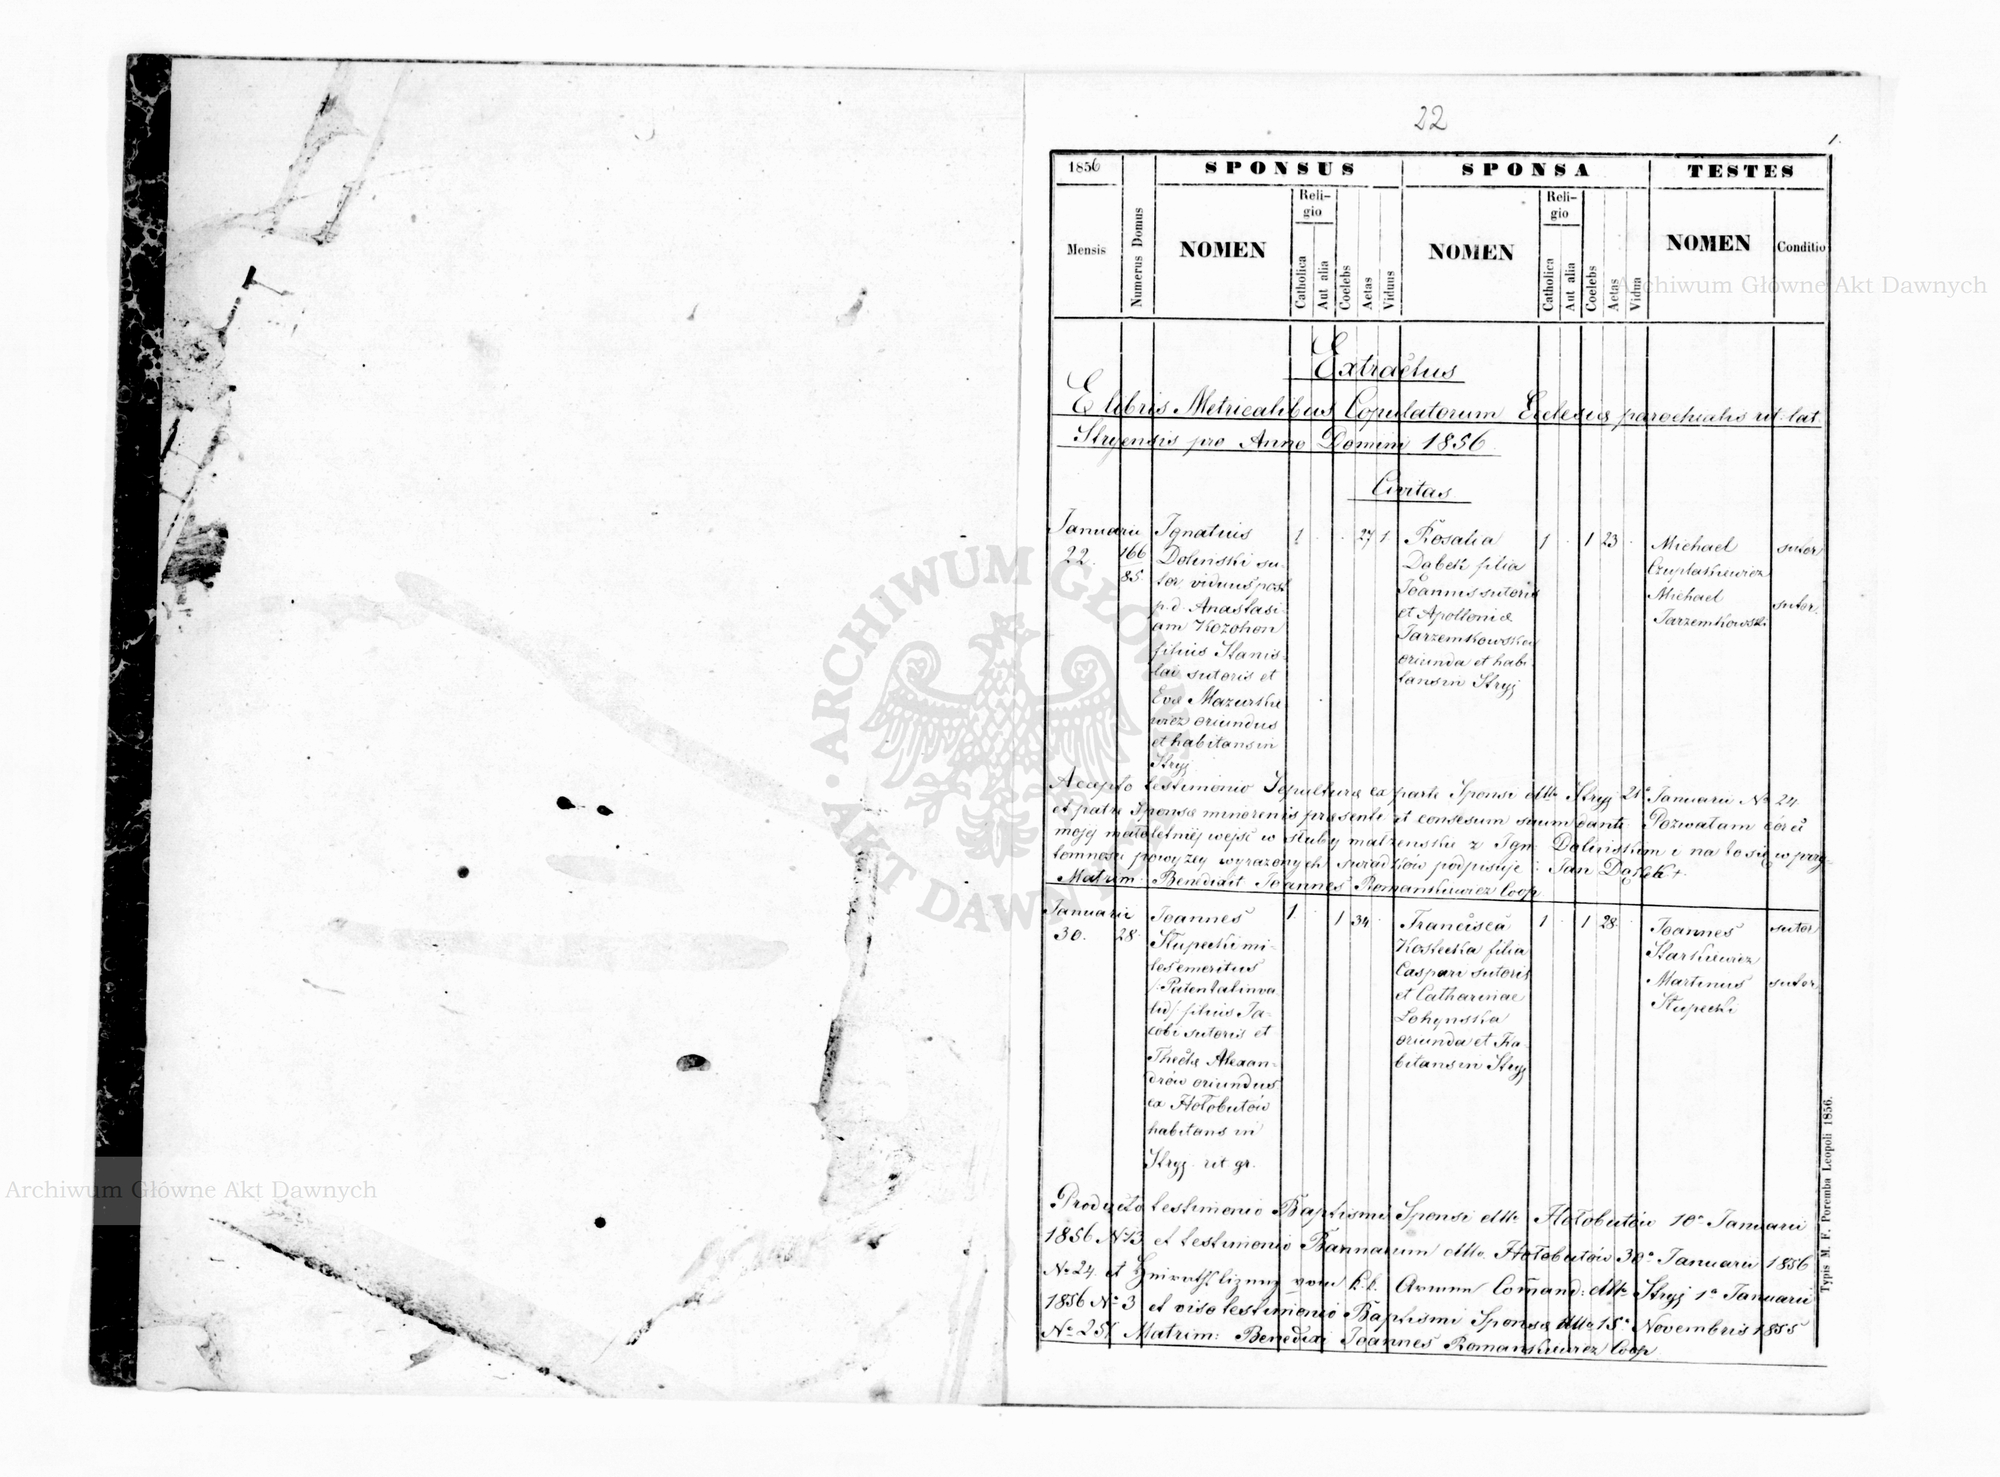 22
1.
1856
SPONSUS
SPONSA
TESTES
Mensis
Numerus Domus
NOMEN
Religio
Catholica
Aut alia
Coelebs
Aetas
Viduus
NOMEN
Religio
Catholica
Aut alia
Coelebs
Aetas
Vidua
NOMEN
Conditio
Extractus
E libris Metricalibus Copulatorum Eclesiæ parochialis rit: lat.
Stryensis pro Anno Domini 1856
Civitas
Januarii
22.
166
85
Ignatius
Dolinski su-
tor viduus post
p. d. Anastasi
am Kozohon
filius Stanis-
lai sutoris et
Evæ Mazurkie
wicz oriundus
et habitans in
Stryj
1 . . 27 1
Rosalia
Dabek filia
Joannis sutoris
et Apolloniæ
Jarzemkowska
oriunda et habi
tans in Stryj
1 . 1 23 .
Michael
Czuplakiewicz
Michael
Jarzemkowski
sutor
sutor.
Acepto testimonio Sepulturæ ex parte Sponsi dtto Stryj 21a Januarii No 24
et patre Sponsæ minorenis præsente et consesum suum dante. Pozwalam córce
mojej małoletniej wejść w śluby małzenskie z Ign: Dolińskim i na to się w przy-
tomności powyzey wyrazonych swiadków podpisuje: Jan Dąbek +
Matrim. Benedixit Joannes Romankiewicz Coop
Januarii
30.
28.
Joannes
Słupecki mi-
les emeritus
/:Patentalinva
lid/: filius Ja-
cobi sutoris et
Theclæ Alexan-
drów oriundus
ex Hołobutów
habitans in
Stryj. rit gr.
1 . 1 34 .
Francisca
Kostecka filia
Caspari sutoris
et Catharinae
Lohynska
oriunda et ha-
bitans in Stryj
1 . 1 28 .
Joannes
Starkiewicz
Martinus
Słupecki
sutor
sutor
Producto testimonio Baptismi Sponsi dtto Hołobutów 10a Januarii
1856 No 13 et testimonio Bannarum dtto. Hołobutów 30a Januarii 1856
No 24 et von k. k. Comand: dtto Stryj 1a Januarii
1856 No 3 et viso testimonio Baptismi Sponsæ dtto 15a Novembris 1855
No 251 Matrim: Benedixi Joannes Romankiewicz Coop
Typis M. F. Poremba Leopoli 1856.
Archiwum Główne Akt Dawnych
Archiwum Główne Akt Dawnych
ARCHIWUM GŁÓWNE AKT DAWNYCH